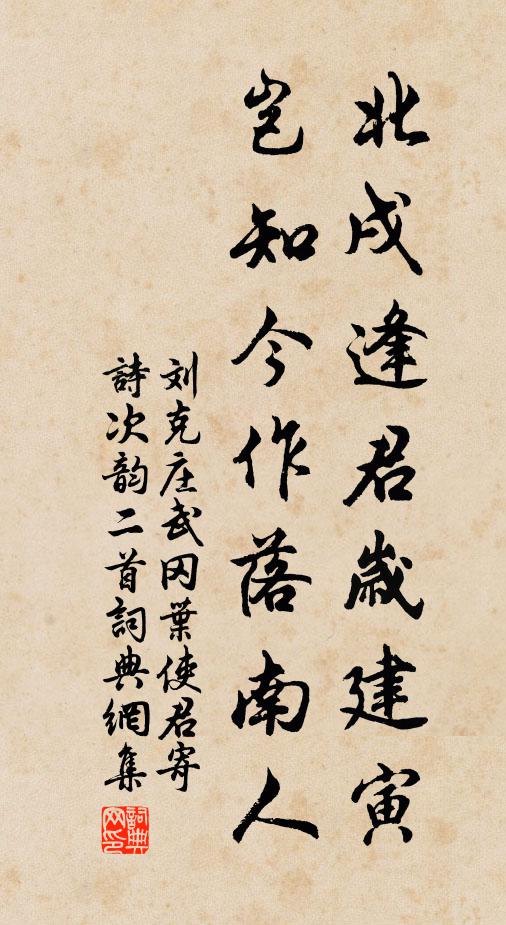 北戍逢君歲建寅
豈知今作落南人
刘克庄武冈葉使君寄
詩次韵二首詞典網集
詞典
网印